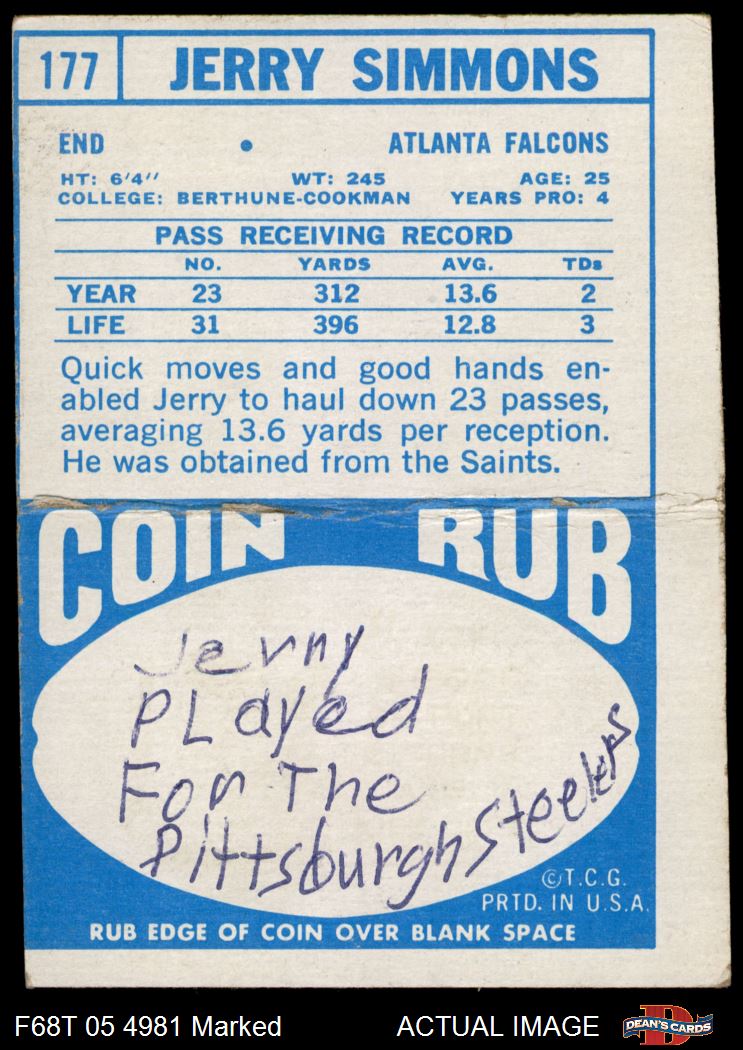 177 JERRY SIMMONS
END • ATLANTA FALCONS
HT: 6'4'' WT: 245 AGE: 25
COLLEGE: BERTHUNE-COOKMAN YEARS PRO: 4
PASS RECEIVING RECORD
NO. YARDS AVG. TDs
YEAR 23 312 13.6 2
LIFE 31 396 12.8 3
Quick moves and good hands en-
abled Jerry to haul down 23 passes,
averaging 13.6 yards per reception.
He was obtained from the Saints.
COIN RUB
Jerry
PLayed
For The
Pittsburgh Steelers
©T.C.G.
PRTD. IN U.S.A.
RUB EDGE OF COIN OVER BLANK SPACE
F68T 05 4981 Marked ACTUAL IMAGE DEAN'S CARDS